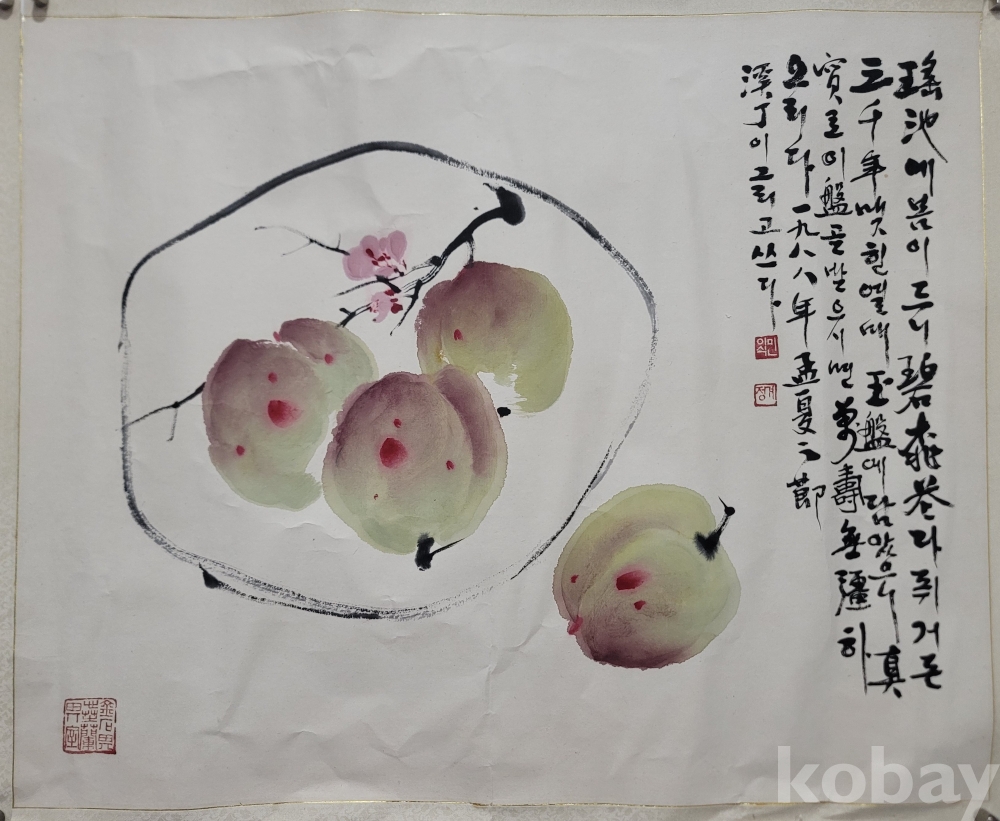 瑤池에 봄이 드니 碧桃花 다 퓌거든
三千年 맷힌 열매 玉盤에 담앗으니 真
實로 이 盤 곧 받으시면 萬壽無疆 하
오리다 一九八八年 孟夏之節
溪丁이 그리고 쓰다
민이식
계정
kobay